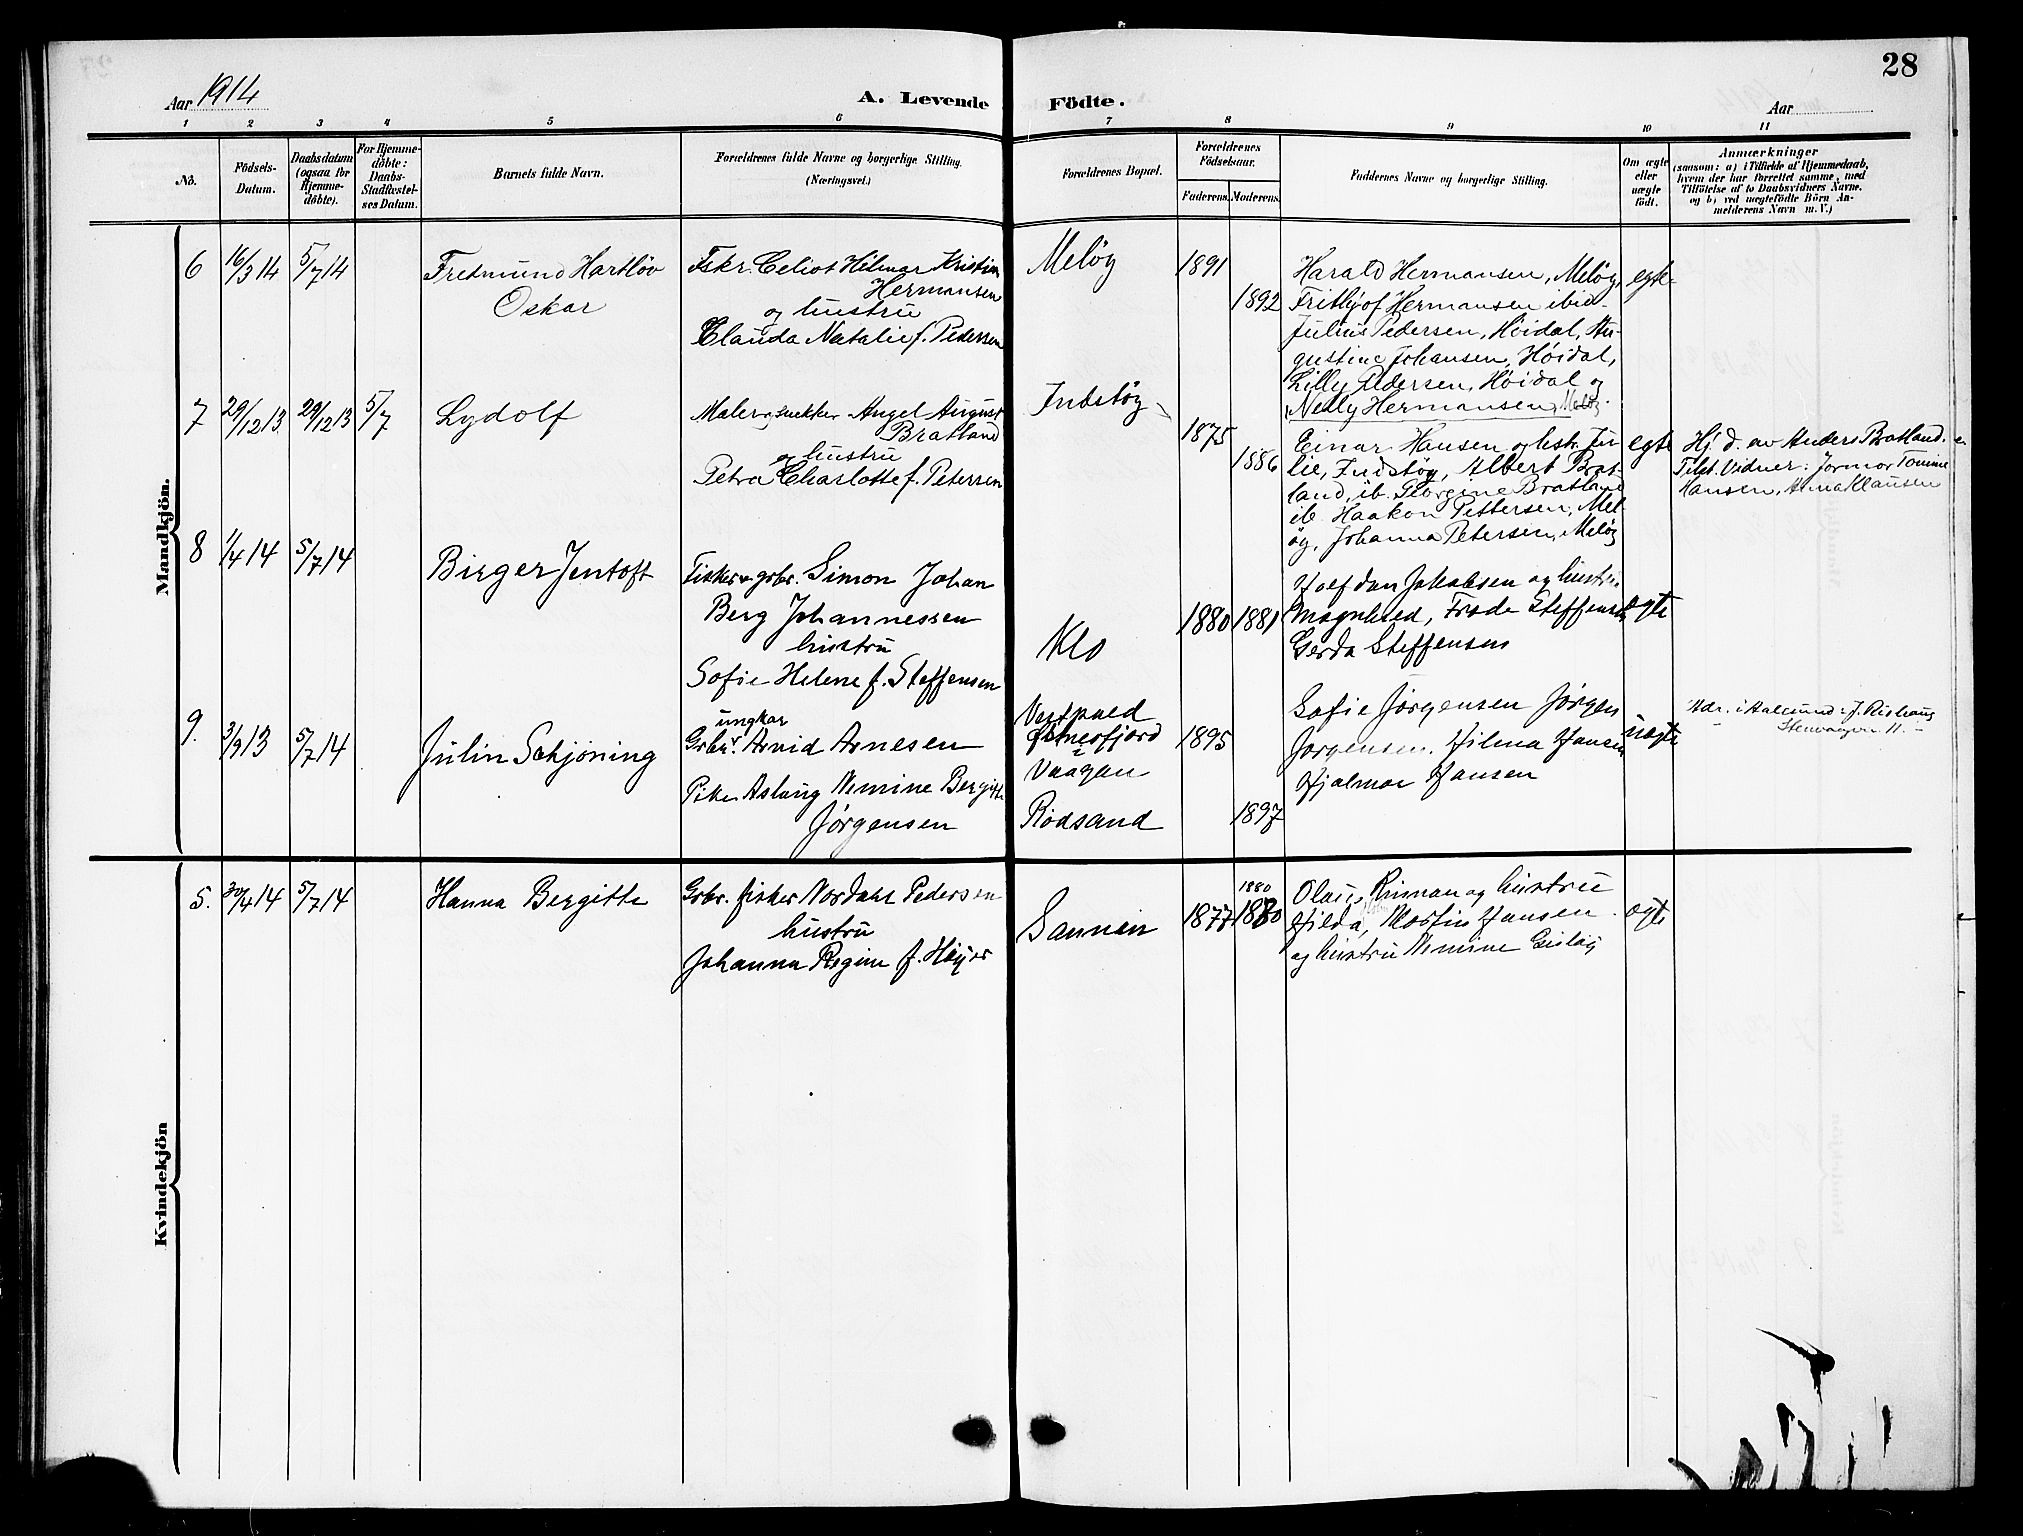 28
Aar 1914
A. Levende Födte.
Aar
1 2 3 4 5 6 7 8 9 10 11
No.
Födsels-Datum.
Daabsdatum (ogsaa for Hjemme-döbte).
For Hjemme-döbte: Daabs-Stadfæstel-ses Datum.
Barnets fulde Navn.
Forældrenes fulde Navne og borgerlige Stilling. (Næringsvei.)
Forældrenes Bopæl.
Forældrenes Födselsaar.
Faderens. Moderens.
Faddernes Navne og borgerlige Stilling.
Om ægte eller uægte födt.
Anmærkninger
(saasom: a) i Tilfælde af Hjemmedaab,
hvem der har forrettet samme, med
Tilföielse af to Daabsvidners Navne.
og b) ved uægtefödte Börn An-
melderens Navn m. V.)
Mandkjön.
6 16/3 14 5/7 14
Fredmund Hartløv
Oskar
Fskr. Celiot Hilmar Kristian
Hermansen
og hustru
Clauda Natalie f. Pedersen
Meløy
1891
1892
Harald Hermansen, Meløy,
Frithjof Hermansen ibid
Julius Pedersen, Høidal, Au-
gustine Johansen, Høidal,
Lilly Pedersen, Høidal og
Nelly Hermansen, Meløy.
egte
7 29/12 13. 29/12 13 5/7
Lydolf
Maler, snekker Angel August
Bratland
og hustru
Petra Charlotte f. Petersen
Indstøy
1875
1886
Einar Hansen og hstr. Ju-
lie, Indstøy, Albert Brat-
land, ib. Georgine Bratland
ib. Haakon Pettersen, Mel-
øy, Johanna Petersen, Meløy
egte
Hj. d. av Anders Bratland.
Tilst. Vidner: Jormor Tomine
Hansen, Alma Klausen
8 1/4 14 5/7 14
Birger Jentoft
Fisker & grbr. Simon Johan
Berg Johannessen
hustru
Sofie Helene f. Steffensen
Klo
1880 1881
Halfdan Jakobsen og hustru
Magnhild, Frode Steffensen
Gerda Steffensen
egte
9. 3/9 13 5/7 14
Julin Schjøning
ungkar
Grbr. Arvid Arnesen
Pike Aslaug Nemine Bergitte
Jørgensen
Vaagen
Rødsand
1895
1897
Sofie Jørgensen Jørgen
Jørgensen. Hilma Hansen
Hjalmar Hansen
uegte
Adr. i Aalesund: J. Rishaug
Stenvaagen 11.
Kvindekjön
5. 30/4 14 5/7 14
Hanna Bergitte
Grbr. fisker Nordahl Pedersen
hustru
Johanna Regine f. Høyer
Sannin
1877
1880
1880
Olaus Riiman og hustru
Hilda, Martin Hansen
og hustru Nemine Gisløy
egte